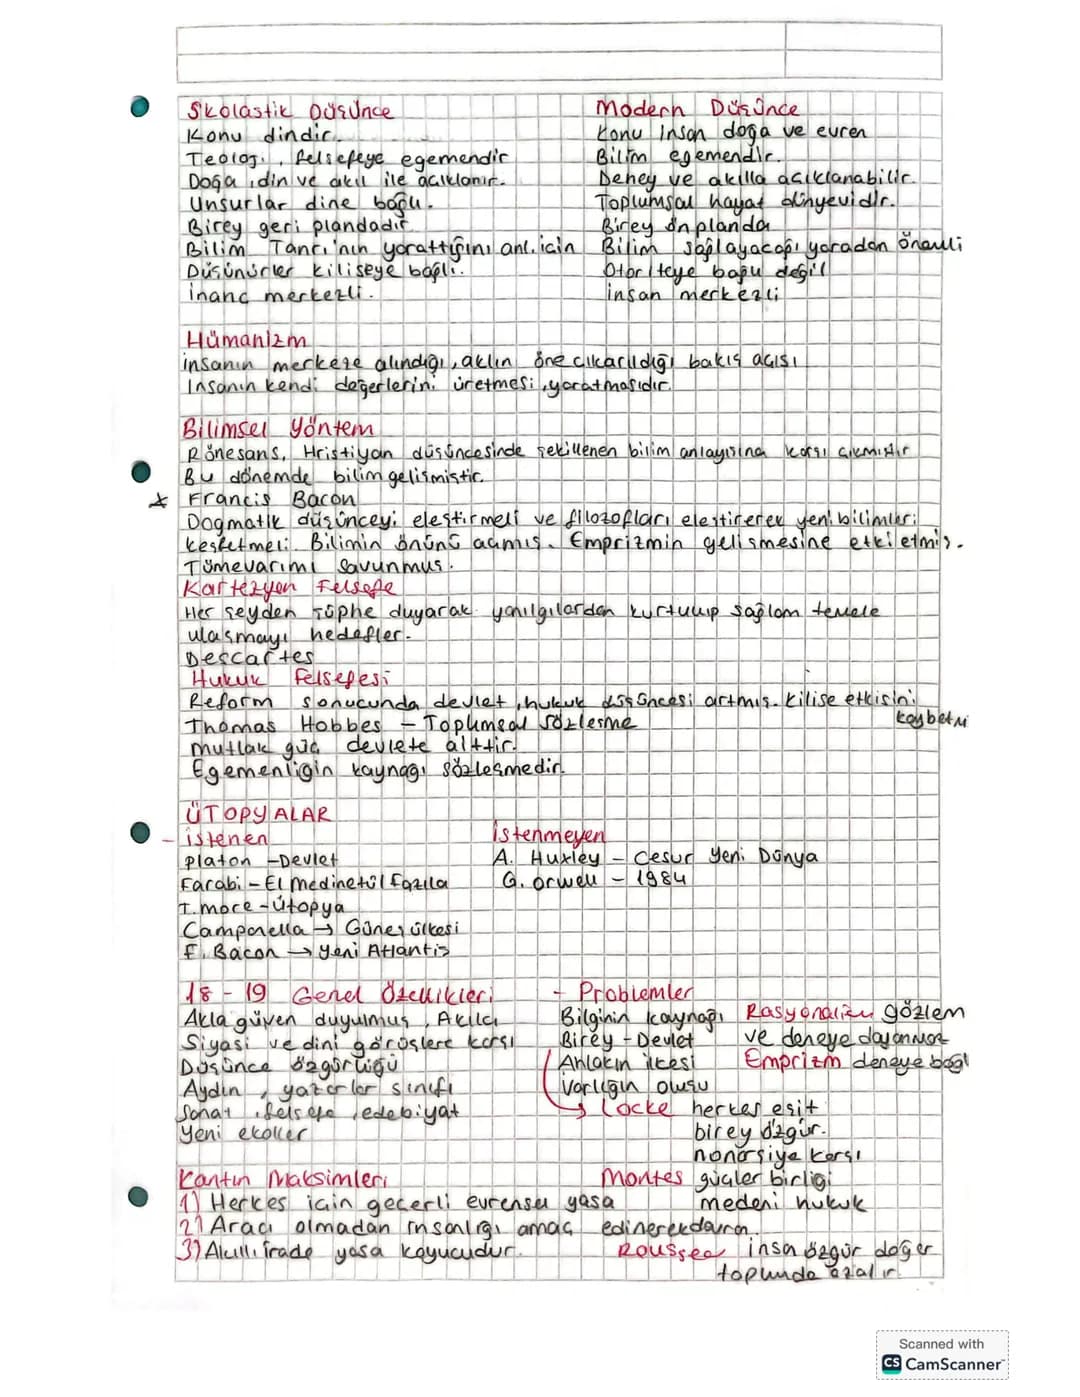 Skolastik Düşünce
Konu dindir.
Teoloji, felsefeye egemendir
Doğa, din ve akıl ile açıklanır.
Unsurlar dine bağlı.
Birey geri plandadır
Bilim Tanrı'nın yarattığını anl. için
Düşünürler kiliseye bağlı.
inanç merkezli.
Modern Düşünce
Konu insan doğa ve evren
Bilim egemendir.
Deney ve akılla açıklanabilir.
Toplumsal hayat dünyevidir.
Birey ön planda
Bilim sağlayacağı yaradan önemli
Otoriteye bağlı değil
insan merkezli
Hümanizm
insanın merkeze alındığı, aklın öne çıkarıldığı bakış açısı
İnsanın kendi değerlerini üretmesi, yaratmasıdır.
Bilimsel Yöntem
Rönesans, Hristiyan düşüncesinde şekillenen bilim anlayışına karşı çıkmıştır
Bu dönemde bilim gelişmiştir.
* Francis Bacon
Dogmatik düşünceyi eleştirmeli ve filozofları eleştirerek yeni bilimleri
keşfetmeli. Bilimin önünü açmış. Emprizmin gelişmesine etki etmiş.
Tümevarımı savunmuş.
Kartezyen Felsefe
Her şeyden şüphe duyarak yanılgılardan kurtulup sağlam temele
ulaşmayı hedefler.
Descartes
Hukuk Felsefesi
Reform sonucunda devlet, hukuk düşüncesi artmış. Kilise etkisini
kaybetmi
Thomas Hobbes - Toplumsal sözleşme
mutlak güç devlete aittir.
Egemenliğin kaynağı sözleşmedir.
ÜTOPYALAR
- istenen
Platon - Devlet
Farabi - El Medinetül Fazıla
T. more - Ütopya
Campanella → Güneş ülkesi
F. Bacon → Yeni Atlantis
istenmeyen
A. Huxley - Cesur Yeni Dünya
G. orwell - 1984
18 - 19 Genel Özellikleri
Akla güven duyulmuş, Akılcı
Siyasi ve dini görüşlere karşı
Düşünce özgürlüğü
Aydın, yazarlar sınıfı
Sanat, felsefe, edebiyat
Yeni ekoller
- Problemler
Bilginin kaynağı Rasyonalizm gözlem
Birey - Devlet ve deneye dayanmaz
Ahlakın ilkesi Emprizm deneye bağl
Varlığın oluşu
→ Locke herkes eşit
birey özgür.
monarşiye karşı
Montes güçler birliği
medeni hukuk
Kantın Maksimleri
1) Herkes için geçerli evrensel yasa
2) Aracı olmadan insanlığı amaç edinerek davran.
3) Akıllı irade yasa koyucudur.
Roussea insan özgür doğar
toplumda azalır.
Scanned with
CS CamScanner